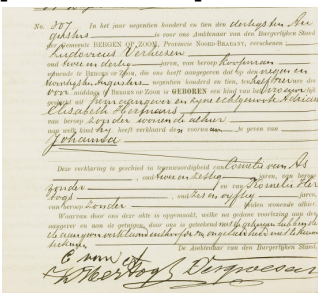 No. 207 In het jaar negentien honderd en tien den dertigsten Au
gustus is voor ons Ambtenaar van den Burgerlijken Stand
der Gemeente BERGEN OP ZOOM, Provincie NOORD-BRABANT, verschenen:
Ludovicus
oud twee en dertig jaren, van beroep koopman
wonende te BERGEN OP ZOOM, die ons heeft aangegeven dat op den negen en
twintigsten Augustus negentien honderd en tien, te
voor middag te BERGEN OP ZOOM is GEBOREN een kind van het
geslacht uit hem aangever en zijne echtgenoote Adriana
Elisabeth Hermans
van beroep zonder wonende alhier
aan welk kind hij heeft verklaard de voornaam te geven van
Johanna
Deze verklaring is geschied in tegenwoordigheid van Cornelis van As
zonder, oud twee en zestig jaren, van beroep
zonder en van Kornelis Her
togs, oud zes en vijftig jaren,
van beroep zonder beiden wonende alhier
Waarvan door ons deze akte is opgemaakt, welke na gedane voorlezing aan den
aangever en aan de getuigen, door ons is geteekend met de getuigen hebbende
de aangever verklaard
teekenen
De Ambtenaar van den Burgerlijken Stand,
C van As
K Hertogs